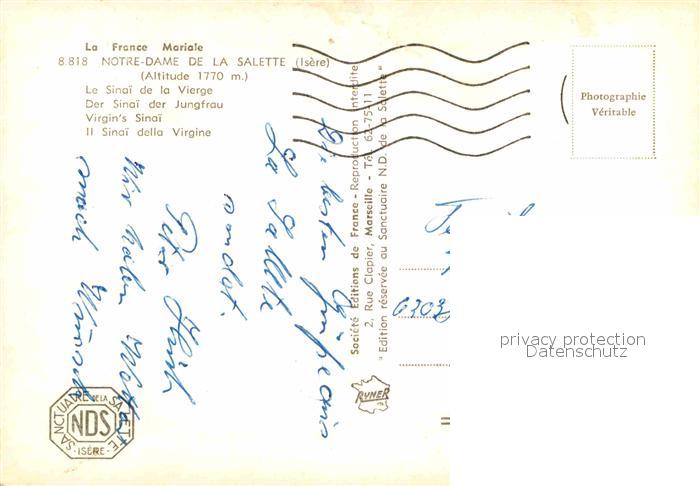 La France Mariale
8.818 NOTRE-DAME DE LA SALETTE (Isère)
(Altitude 1770 m.)
Le Sinaï de la Vierge
Der Sinaï der Jungfrau
Virgin's Sinaï
Il Sinaï della Virgine
Photographie
Véritable
Société Editions de France - Reproduction interdite
2, Rue Clapier, Marseille - Tél. 62-75-11
"Edition réservée au Sanctuaire N.D. de la Salette"
Die besten
La Sallette
sendet
Peter
Wir haben
nach Wunsch
6303
privacy protection
Datenschutz
RYNER
SANCTUAIRE DE LA SALETTE
NDS
- ISÈRE -